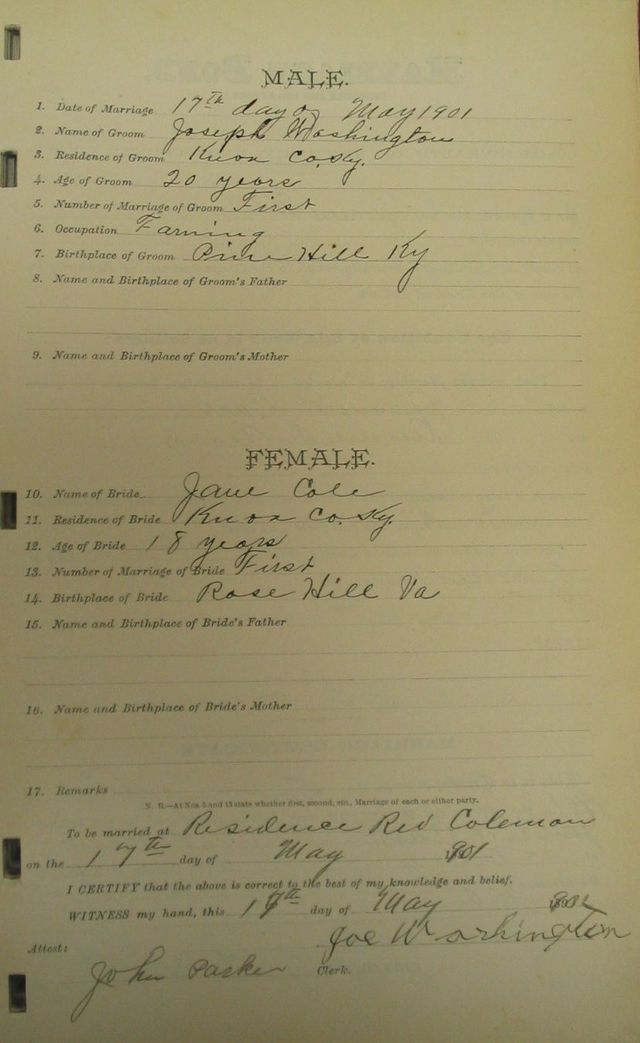 MALE.
1. Date of Marriage 17th day of May 1901
2. Name of Groom Joseph Washington
3. Residence of Groom Knox Co. Ky.
4. Age of Groom 20 years
5. Number of Marriage of Groom First
6. Occupation Farming
7. Birthplace of Groom Pine Hill Ky
8. Name and Birthplace of Groom's Father
9. Name and Birthplace of Groom's Mother
FEMALE.
10. Name of Bride Jane Cole
11. Residence of Bride Knox Co. Ky.
12. Age of Bride 18 years
13. Number of Marriage of Bride First
14. Birthplace of Bride Rose Hill Va
15. Name and Birthplace of Bride's Father
16. Name and Birthplace of Bride's Mother
17. Remarks
N. B.—At Nos. 5 and 13 state whether first, second, etc., Marriage of each or either party.
To be married at Residence Rev Coleman
on the 17th day of May 1901
I CERTIFY that the above is correct to the best of my knowledge and belief.
WITNESS my hand, this 17th day of May
Joe Washington
Attest:
John Parker Clerk.